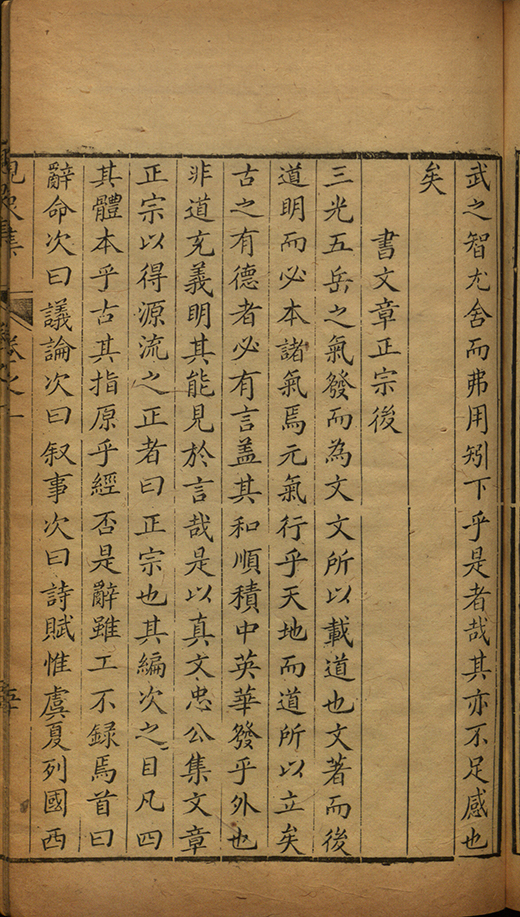 武之智尤舍而弗用矧下乎是者哉其亦不足感也
矣
書文章正宗後
三光五岳之氣發而為文文所以載道也文著而後
道明而必本諸氣焉元氣行乎天地而道所以立矣
古之有德者必有言盖其和順積中英華發乎外也
非道充義明其能見於言哉是以真文忠公集文章
正宗以得源流之正者曰正宗也其編次之目凡四
其體本乎古其指原乎經否是辭雖工不録焉首曰
辭命次曰議論次曰叙事次曰詩賦惟虞夏列國西